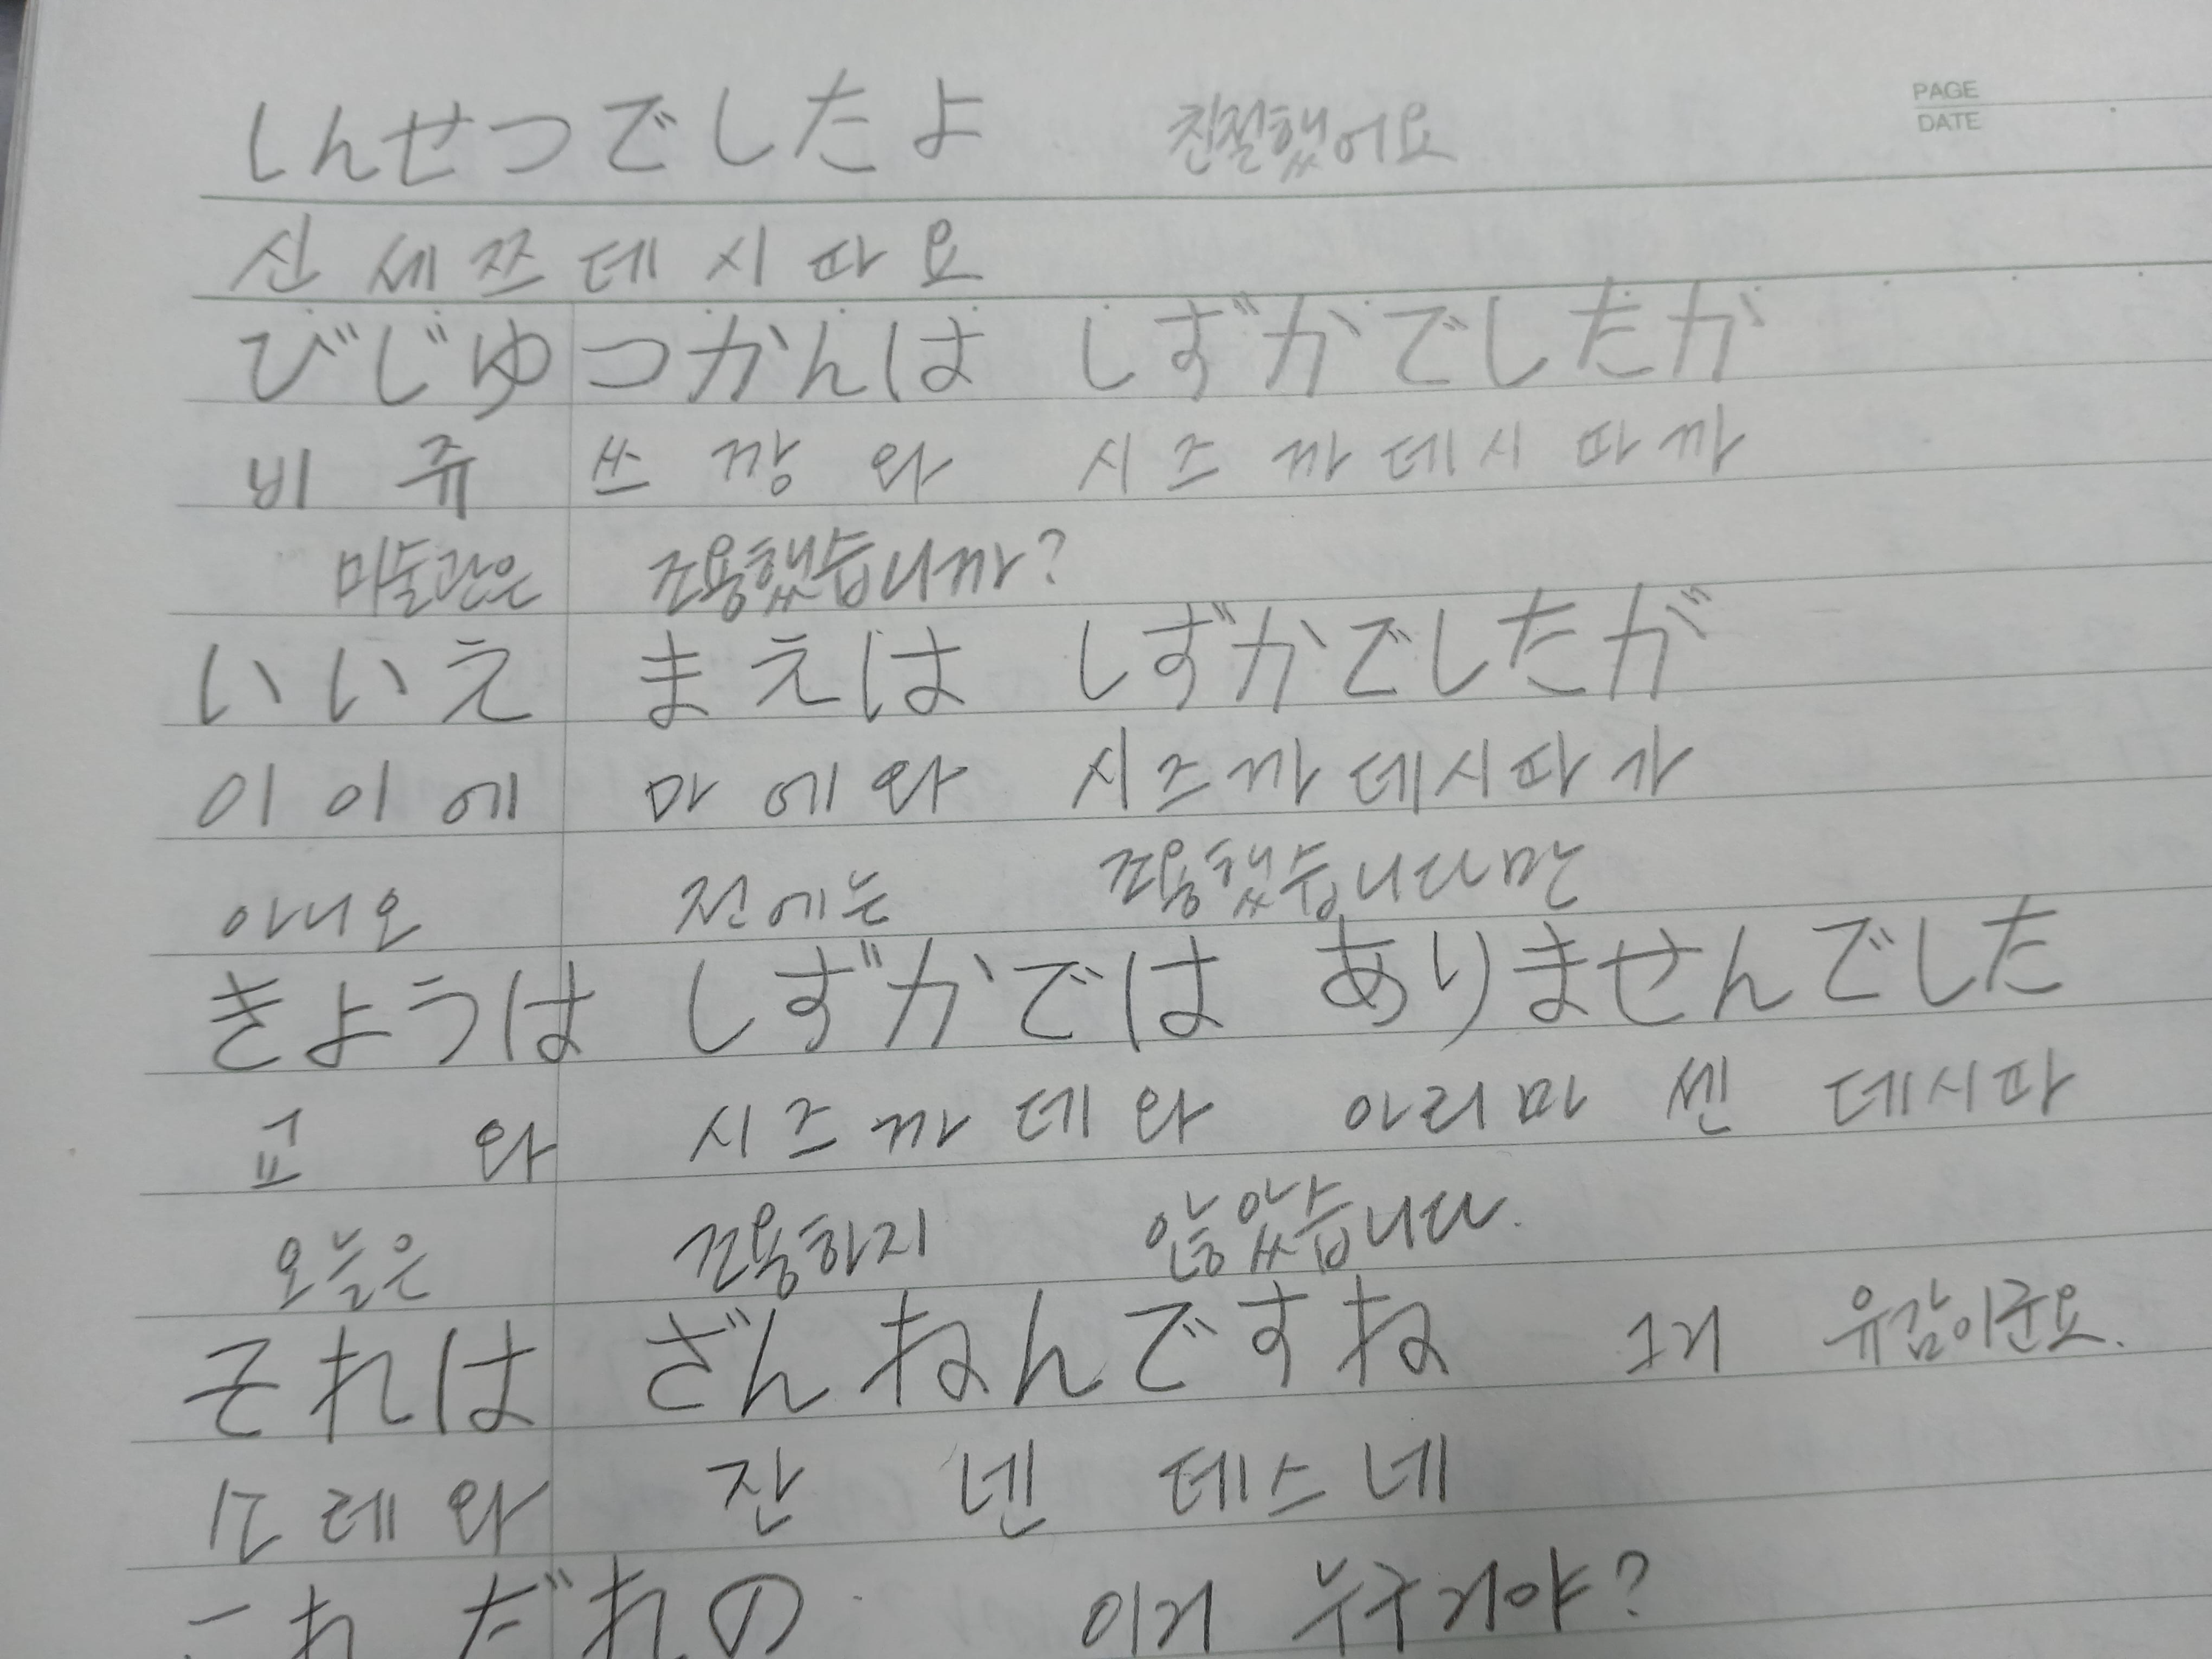 PAGE
DATE
しんせつでしたよ 친절했어요
신 세 쯔 데 시 따 요
びじゆつかんは しずかでしたか
비 쥬 쓰 깡 와 시 즈 까 데 시 따 까
미술관은 조용했습니까?
いいえ まえは しずかでしたが
이 이 에 마 에 와 시 즈 까 데 시 따 가
아니오 전에는 조용했습니다만
きようは しずかでは ありませんでした
교 와 시 즈 까 데 와 아 리 마 센 데 시 따
오늘은 조용하지 않았습니다.
それは ざんねんですね 그거 유감이군요.
소 레 와 잔 넨 데 스 네
これ だれの 이거 누구거야?